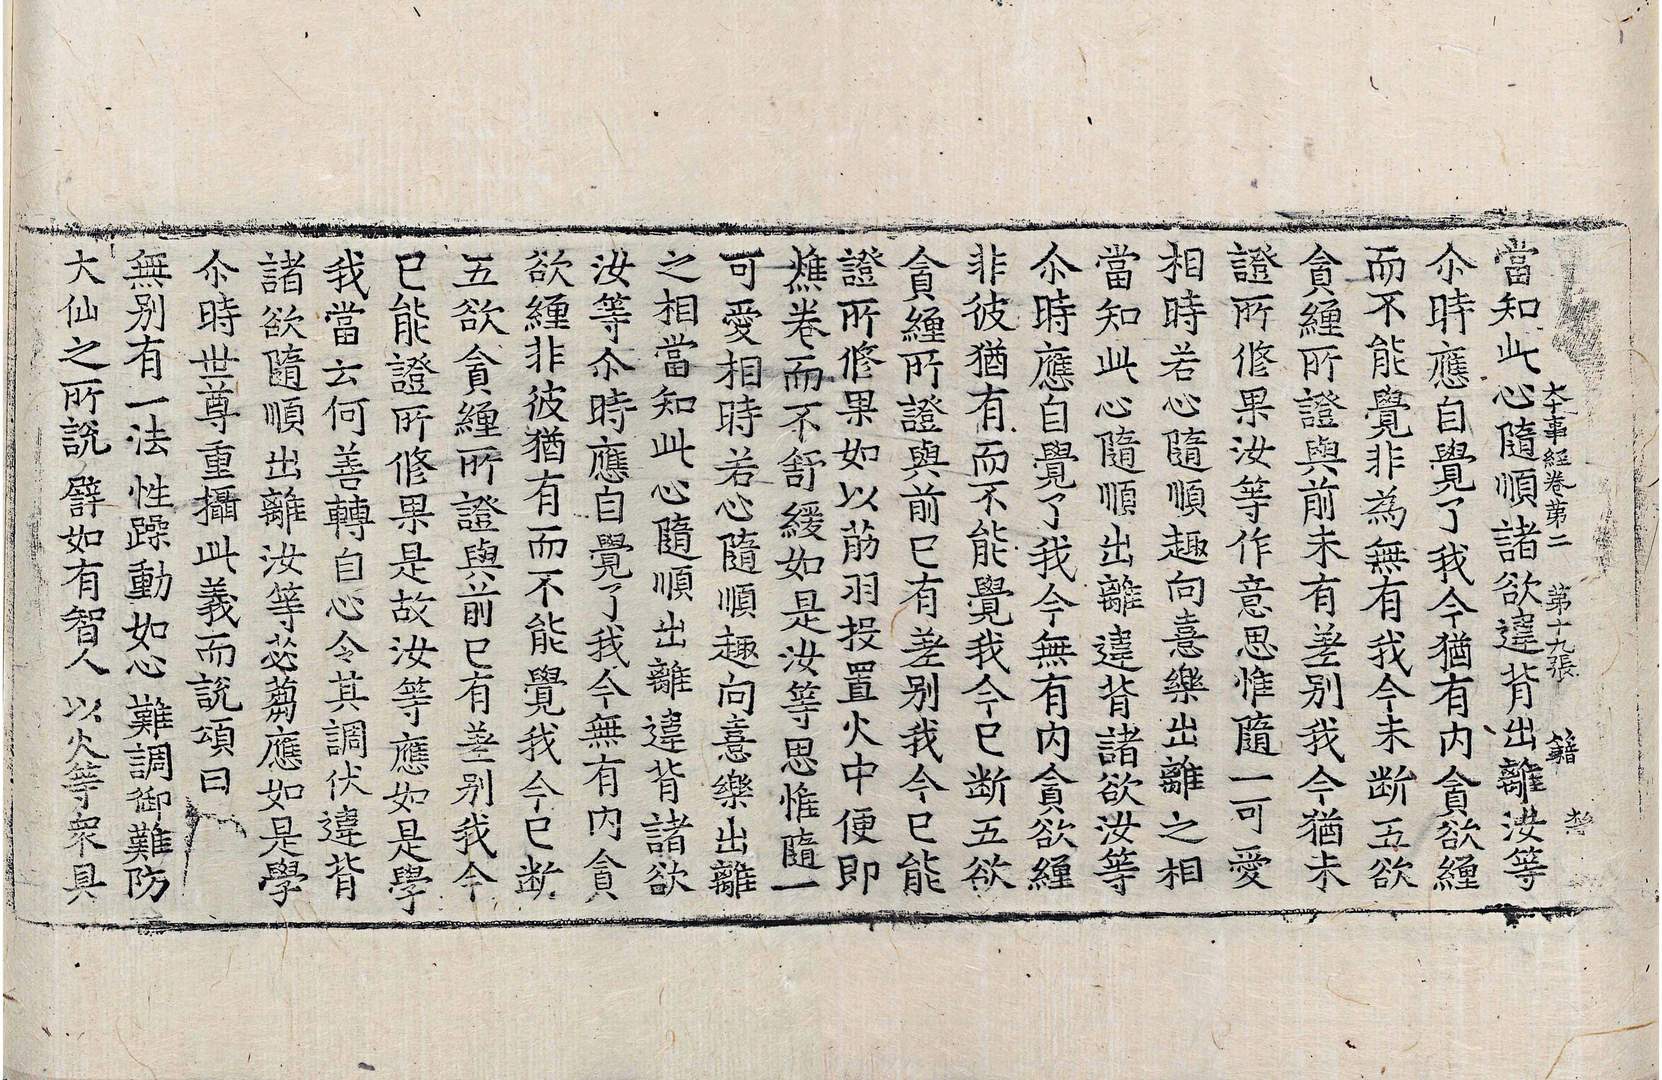 本事經卷第二 第十九張 籍
當知此心隨順諸欲違背出離汝等
尒時應自覺了我今猶有內貪欲纏
而不能覺非為無有我今未断五欲
貪纏所證與前未有差别我今猶未
證所修果汝等作意思惟隨一可愛
相時若心隨順趣向憙樂出離之相
當知此心隨順出離違背諸欲汝等
尒時應自覺了我今無有內貪欲纏
非彼猶有而不能覺我今已断五欲
貪纏所證與前已有差别我今已能
證所修果如以筋羽投置火中便即
燋卷而不舒緩如是汝等思惟隨一
可愛相時若心隨順趣向憙樂出離
之相當知此心隨順出離違背諸欲
汝等尒時應自覺了我今無有內貪
欲纏非彼猶有而不能覺我今已断
五欲貪纏所證與前已有差别我今
已能證所修果是故汝等應如是學
我當云何善轉自心令其調伏違背
諸欲隨順出離汝等苾芻應如是學
尒時世尊重攝此義而說頌曰
無别有一法 性躁動如心 難調御難防
大仙之所說 譬如有智人 以火等衆具